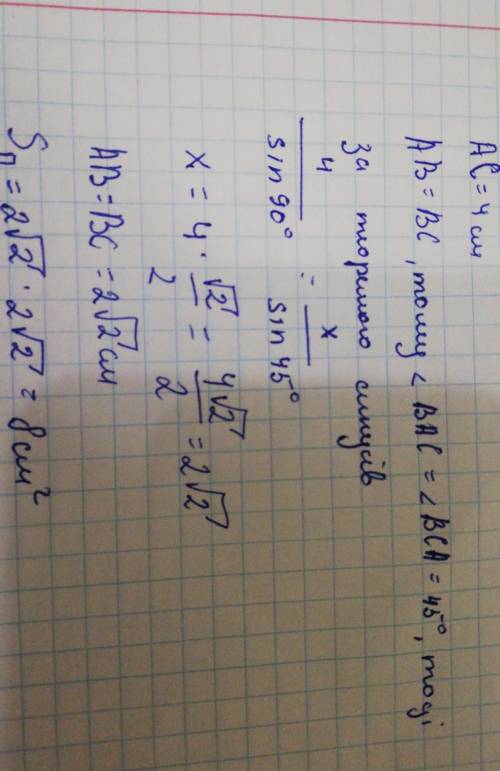 AC = 4 см
AB = BC, тому < BAC = < BCA = 45°, тоді
За теоремою синусів
4/sin 90° = x/sin 45°
x = 4 · √2/2 = 4√2/2 = 2√2
AB = BC = 2√2 см
Sп = 2√2 · 2√2 = 8 см²